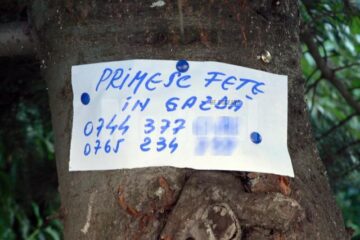 PRIMESC FETE
ÎN GAZDĂ
0744 377
0765 234